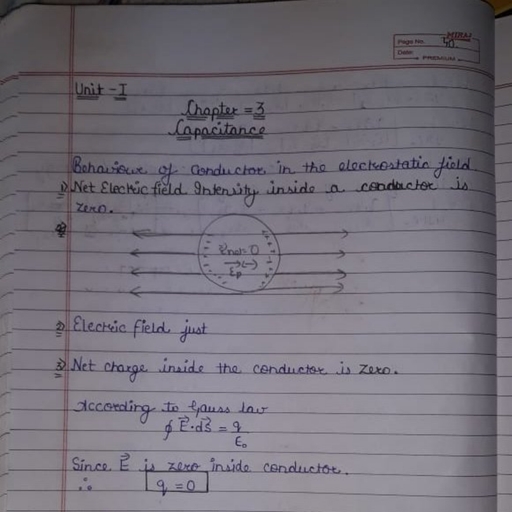 Page No. 40
Date:
PREMIUM
Unit - I
Chapter = 3
Capacitance
Behaviour of conductor in the electrostatic field
1) Net Electric field Intensity inside a conductor is
zero.
Enet = 0
Ep
2) Electric field just
3) Net charge inside the conductor is zero.
According to Gauss law
∮ E⃗·dS⃗ = q/ε₀
Since E⃗ is zero inside conductor.
∴ q = 0